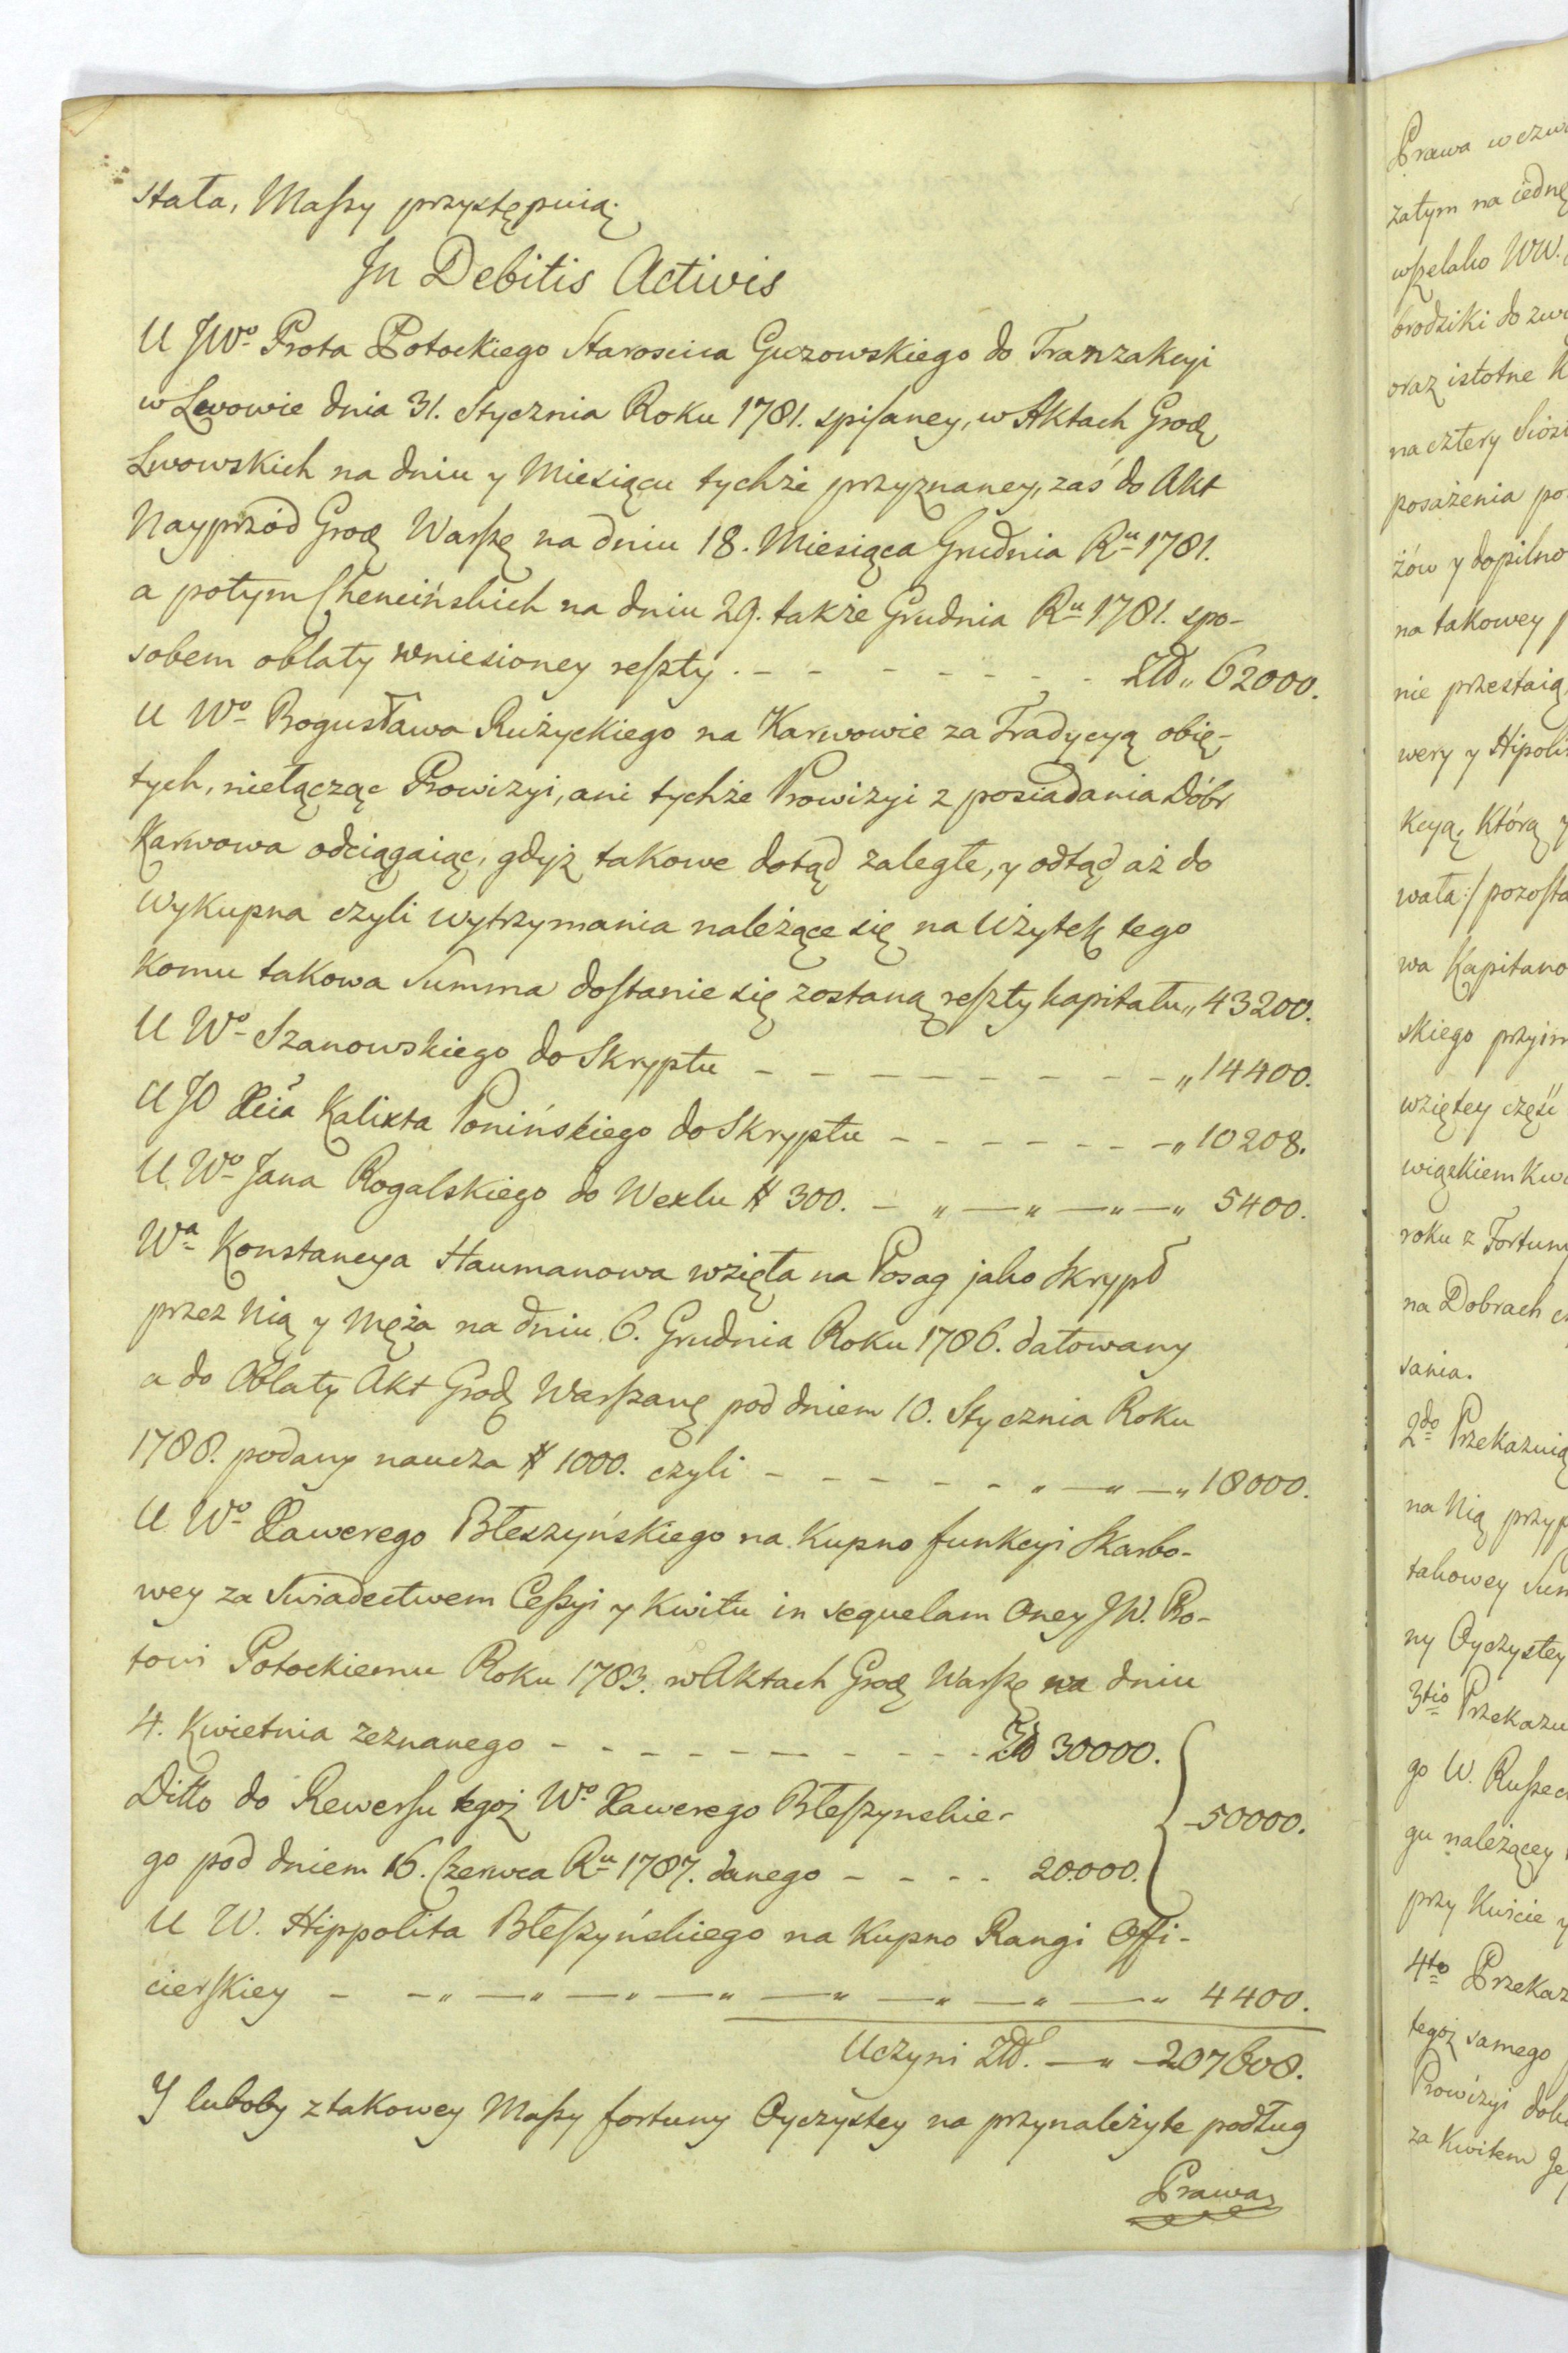 stała, Maſsy przystępuią.
In Debitis Activis
U JWo Prota Potockiego Staroscica Guzowskiego do Tranzakcyi
w Lwowie dnia 31. Stycznia Roku 1781. spiſaney, w Aktach Grodz
Lwowskich na dniu y Miesiącu tychże przyznaney, zaś do Akt
Nayprzód Grodz Warſz na dniu 18. Miesiąca Grudnia Ru 1781.
a potym Chencińskich na dniu 29. także Grudnia Ru 1781. spo-
sobem oblaty wniesioney reſzty . - - - - - - - Złł „ 62000.
U Wo Bogusława Rużyckiego na Karwowie za Tradycyą obię-
tych, niełącząc Prowizyi, ani tychże Prowizyi z posiadania Dóbr
Karwowa odciągaiąc, gdyż takowe dotąd zaległe, y odtąd aż do
wykupna czyli wytrzymania należące się na Użytek tego
komu takowa Summa doſtanie się zostaną reſzty kapitału „ 43200.
U Wo Szanowskiego do Skryptu - - - - - - - - - „ 14400.
U JO Xcia Kalixta Ponińskiego do Skryptu - - - - - - - „ 10208.
U Wo Jana Rogalskiego do Wexlu # 300. - „ - „ - „ - „ 5400.
Wa Konstancya Haumanowa wzięła na Posag jako Skrypt
przez Nią y Męża na dniu 6. Grudnia Roku 1786. datowany
a do Oblaty Akt Grodz Warſzaw pod dniem 10. Stycznia Roku
1788. podany naucza # 1000. czyli - - - - - - „ - „ - „ 18000.
U Wo Xawerego Błeszyńskiego na Kupno funkcyi Skarbo-
wey za Swiadectwem Ceſsyi y Kwitu in sequelam Oney JW. Pro-
towi Potockiemu Roku 1783. w Aktach Grodz Warſz na dniu
4. Kwietnia zeznanego - - - - - - - - - - Złł 30000.
Ditto do Rewerſu tegoż Wo Xawerego Błeſzynskie-
- 50000.
go pod dniem 16. Czerwca Ru 1787. danego - - - - 20000.
U W. Hippolita Błeſzyńskiego na Kupno Rangi Offi-
cierſkiey - - „ - „ - „ - „ - „ - „ - „ - „ 4400.
Uczyni Złł. - „ - 207608.
Y luboby z takowey Maſsy fortuny Oyczystey na przynależyte podług
Prawa
Prawa
zatym na iednę
wſzelako WW.
brodziki do
oraz istotne
na cztery
posażenia po
żów y dopilno
na takowey
nie przestaią
wery y Hipoli
kcyą, którą
wała :/ pozoſta
wa Kapitano
skiego przyim
wziętey część
wiązkiem
roku z Fortuny
na Dobrach
sania.
2do Przekazuią
na Nią przyp
takowey Sum
ny Oyczystey
3tio Przekazu
go W. Ruſzec
gu należącey
przy Kwicie y
4to Przekaz
tegoż samego
Prowizyi
za Kwitem